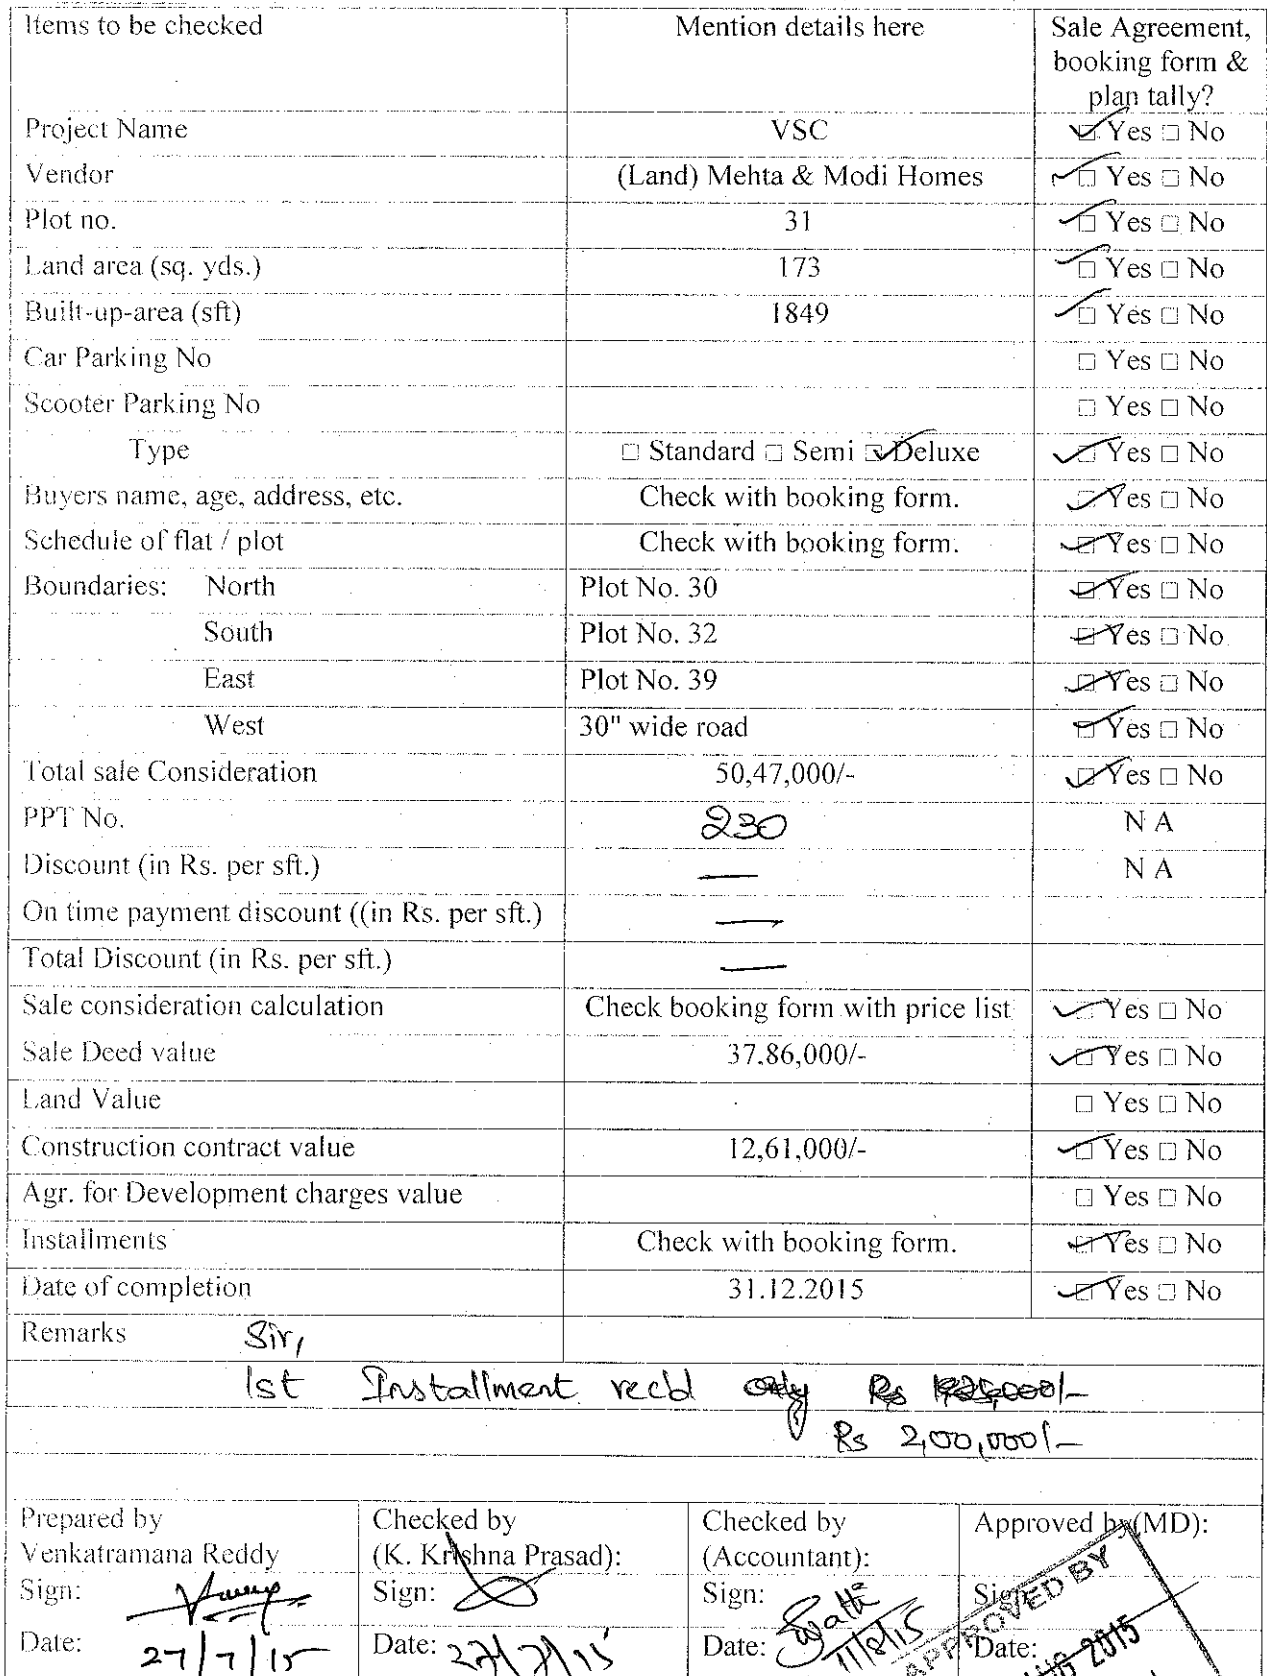 Items to be checked Mention details here Sale Agreement,
booking form &
plan tally?
Project Name VSC Yes □ No
Vendor (Land) Mehta & Modi Homes □ Yes □ No
Plot no. 31 □ Yes □ No
Land area (sq. yds.) 173 □ Yes □ No
Built-up-area (sft) 1849 □ Yes □ No
Car Parking No □ Yes □ No
Scooter Parking No □ Yes □ No
Type □ Standard □ Semi □ Deluxe □ Yes □ No
Buyers name, age, address, etc. Check with booking form. □ Yes □ No
Schedule of flat / plot Check with booking form. □ Yes □ No
Boundaries: North Plot No. 30 □ Yes □ No
South Plot No. 32 □ Yes □ No
East Plot No. 39 □ Yes □ No
West 30" wide road □ Yes □ No
Total sale Consideration 50,47,000/- □ Yes □ No
PPT No. 230 N A
Discount (in Rs. per sft.) — N A
On time payment discount ((in Rs. per sft.) —
Total Discount (in Rs. per sft.) —
Sale consideration calculation Check booking form with price list □ Yes □ No
Sale Deed value 37.86,000/- □ Yes □ No
Land Value □ Yes □ No
Construction contract value 12,61,000/- □ Yes □ No
Agr. for Development charges value □ Yes □ No
Installments Check with booking form. □ Yes □ No
Date of completion 31.12.2015 □ Yes □ No
Remarks Sir,
1st Installment recd only Rs
Rs 2,00,000/-
Prepared by Checked by Checked by Approved by (MD):
Venkatramana Reddy (K. Krishna Prasad): (Accountant):
Sign: Sign: Sign: Swathi Sign:
Date: 27/7/15 Date: 27/7/15 Date: 11/8/15 Date:
APPROVED BY
AUG 2015